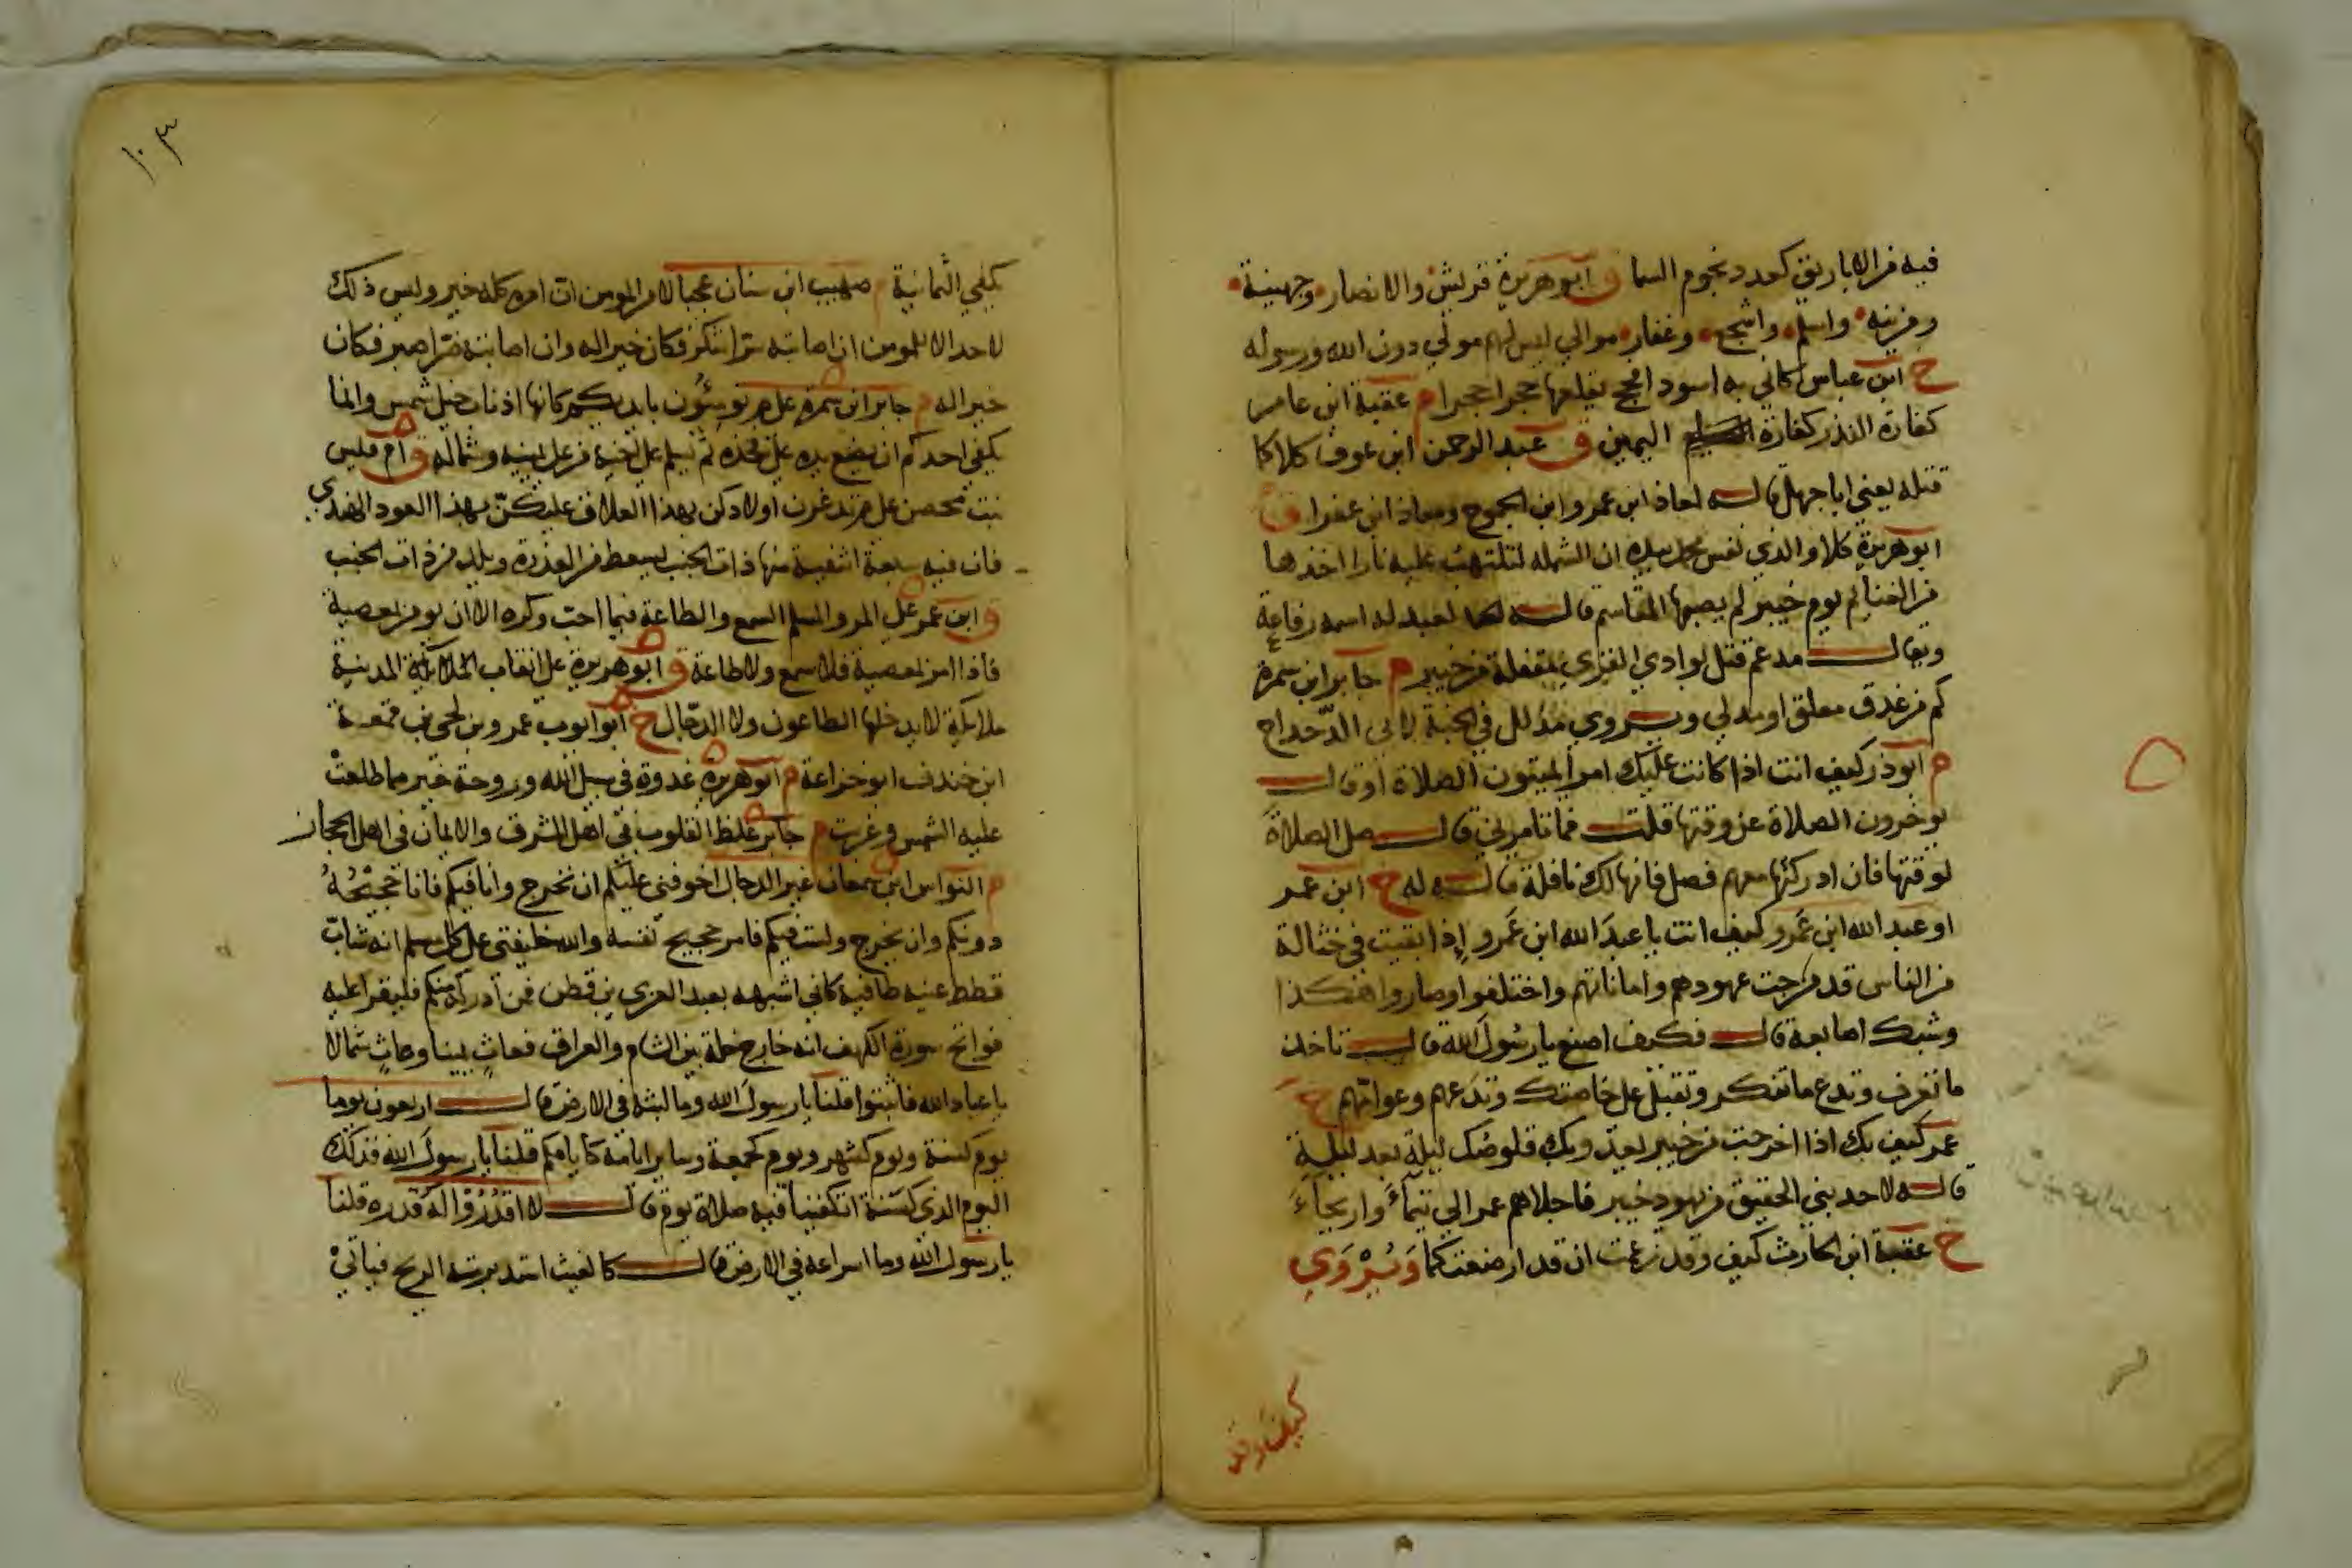 فيه من الاباريق كعدد نجوم السما ق ابو هريرة قريش والانصار وجهينة
ومزينه واسلم واشجع وغفار موالي ليس لهم مولي دون الله ورسوله
خ ابن عباس كاني به اسود افحج يقلعها حجرا حجرا م عقبة ابن عامر
كفارة النذر كفارة اليمين ق عبد الرحمن ابن عوف كلاكا
قتله يعني ابا جهل قاله لمعاذ ابن عمرو ابن الجموح ومعاذ ابن عفرا ق
ابو هريرة كلا والذي نفس محمد بيده ان الشمله لتلتهب عليه نارا اخذها
من الغنايم يوم خيبر لم يصبها المقاسم قاله لعبد له اسمه رفاعة
ويقال مدعم قتل بوادي القري مقفلة من خيبر م جابر ابن سمرة
كم من عذق معلق او مدلي ويروي مذلل في الجنة لابي الدحداح
م ابو ذر كيف انت اذا كانت عليك امرا يميتون الصلاة او قال
يوخرون الصلاة عن وقتها قلت فما تامرني قال صل الصلاة
لوقتها فان ادركتها معهم فصل فانها لك نافلة قاله له خ ابن عمر
او عبد الله ابن عَمرو كيف انت يا عبدَ الله ابن عَمرو إذا بقيت في حثالة
من الناس قد مرجت عهودهم واماناتهم واختلفوا وصاروا هكذا
وشبك اصابعه قال فكيف اصنع يا رسُولَ الله قال تاخذ
ما تعرف وتدع ما تنكر وتقبل علي خاصتك وتدعهم وعوامّهم خ
عمر كيف بك اذا اخرجت من خيبر تعدو بك قلوصُك ليلة بعد ليلة
قاله لاحد بني الحقيق من يهود خيبر فاجلاهم عمر الي تيمآءَ واريحآءَ
خ عقبة ابن الحارث كيف وقد زعمت ان قد ارضعتكما وَيُرْوَي
كيف وقد
١٠٣
يكفي الثمانية م صهيب ابن سنان عجبا لامر المومن ان امره كله خير وليس ذلك
لاحد الا للمومن ان اصابته سرا شكر فكان خيرا له وان اصابته ضرا صبر فكان
خيرا له م جابر ابن سمرة علي م تومئُون بايديكم كانها اذناب خيل شمس وانما
يكفي احدكم ان يضع يده علي فخذه ثم يسلم علي اخيه من علي يمينه وشماله ق ام قيس
بنت محصن علي م تدغرن اولادكن بهذا العلاق عليكنّ بهذا العود الهندي
فان فيه سبعة اشفية منها ذات الجنب يسعط من العذرة ويلد من ذات الجنب
ق ابن عمر علي المرء المسلم السمع والطاعة فيما احب وكره الا ان يومر بمعصية
فاذا امر بمعصية فلا سمع ولا طاعة ق ابو هريرة علي انقاب المدينة
ملايكة لا يدخلها الطاعون ولا الدجال خ ابو ايوب عمرو بن لحي بن قمعة
ابن خندف ابو خزاعة م ابو هريرة غدوة في سبيل الله وروحة خير مما طلعت
عليه الشمس وغربت م جابر غلظ القلوب في اهل المشرق والايمان في اهل الحجاز
م النواس ابن سمعان غير الدجال اخوفني عليكم ان يخرج وانا فيكم فانا حجيْجُهُ
دونكم وان يخرج ولست فيكم فامر حجيج نفسه والله خليفتي علي كل مسلم انه شابّ
قطط عينه طافية كاني اشبهه بعبد العزي بن قطن فمن ادركه منكم فليقرا عليه
فواتح سورة الكهف انه خارج خلة بين الشام والعراق فعاثٍ يمينا وعاثٍ شمالا
يا عباد الله فاثبتوا قلنا يا رسولَ الله وما لبثه في الارض قال اربعون يوما
يوم كسنة ويوم كشهر ويوم كجمعة وساير ايامه كايامكم قلنا يا رسولَ الله فذلك
اليوم الذي كسَنة اتكفينا فيه صلاة يوم قال لا اقدُرُوا له قدره قلنا
يا رسولَ الله وما اسراعه في الارض قال كالغيث استدبرته الريح فياتي